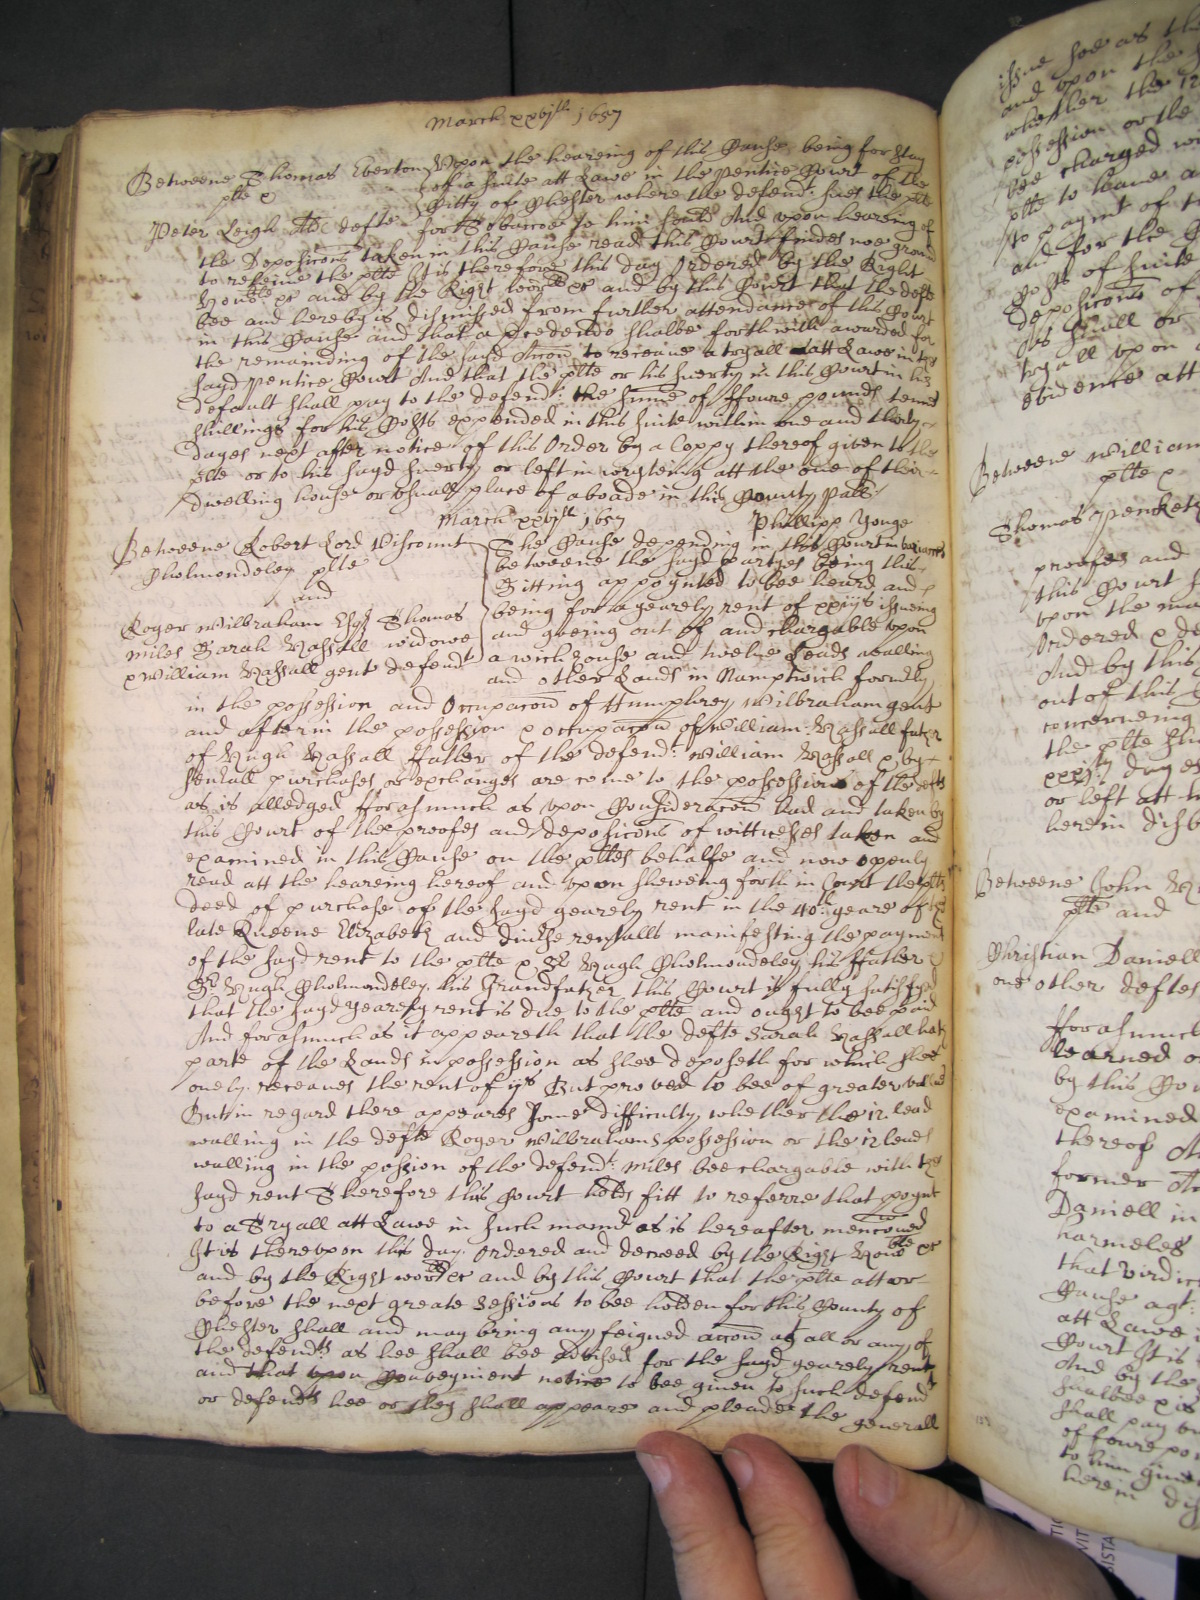 March xxvjth 1657
Betweene Thomas Everton Upon the heareing of this Cause being for stay
plte & of a suite att Lawe in the Pentice Court of the
Citty of Chester where the defendt. sues the plte
Peter Leigh defte for Tobaccoe to him sould And upon heareing of
the Deposicons taken in this Cause read this Court findes noe ground
to releive the plte It is therefore this day Ordered by the Right
Honoble &c and by the Right worpll &c and by this Court that the defte
bee and hereby is dismissed from further attendance of this Court
in this Cause and that a Procedendo shalbe forthwith awarded for
the remainding of the sayd Accon to receive a tryall att Lawe in the
sayd Pentice Court And that the plte or his suerty in this Court in his
default shall pay to the defendt: the summe of ffoure pounds tenne
shillings for his Costs expended in this suite within one and thirty
dayes next after notice of this Order by a Coppy thereof given to the
plte or to his sayd suerty or left in wrighteing att the one of their
dwelling house or usuall place of aboade in this County Pall:
March xxvjth 1657 Phillipp Yonge
Betweene Robert Lord Viscount The Cause depending in this Court in variance
Cholmondeley plte betweene the sayd partyes being this
and Sitting appoynted to bee heard and
Roger Wilbraham Esqr Thomas being for a yearely rent of xxijs issueing
Miles Sarah Wassall widowe and goeing out of and chargable upon
& William Wassall gent defendts a wich house and twelve Leads walling
and other Lands in Namptwich formerly
in the possession and Occupacon of Humphrey Wilbraham gent
and after in the possession & occupacon of William Wassall father
of Hugh Wassall ffather of the defendt: William Wassall & by
severall purchases or exchanges are come to the possession of the defts
as is alledged fforasmuch as upon Consideracon had and taken by
this Court of the proofes and deposicons of wittnesses taken and
examined in this Cause on the pltes behalfe and now openly
read att the heareing hereof and upon sheweing forth in Court the pltes
deed of purchase of the sayd yearely rent in the 40th yeare of the
late Queene Elizabeth and divse rentalls manifesting the payment
of the sayd rent to the plte & Sr Hugh Cholmondeley his ffather &
Sr Hugh Cholmondeley his Grandfather this Court is fully satisfyed
that the sayd yearely rent is due to the plte and ought to bee paid
And forasmuch as it appeareth that the defte Sarah Wassall hath
parte of the Lands in possession as shee deposeth for which shee
onely receaves the rent of ijs But proved to bee of greater vallue
But in regard there appeares some difficulty whether the 12 lead
walling in the defte Roger Wilbrahams possession or the 12 leads
walling in the possion of the defendt: Miles bee chargable with the
sayd rent Therefore this Court holds fitt to referre that poynt
to a Tryall att Lawe in such mannr as is hereafter mencioned
It is thereupon this day Ordered and decreed by the Right Honoble &c
and by the Right worpll &c and by this Court that the plte att or
before the next greate Sessions to bee holden for this County of
Chester shall and may bring any feigned accon agt all or any of
the defendts as hee shall bee advised for the sayd yearely rent
and that upon Convenient notice to bee given to such defendt
or defendts hee or they shall appeare and pleade the generall
issue soe as the
and upon the
whether the 12
possession or the
bee charged wi
plte to leave a
to paymt of t
and for the
Costs of suite
deposicons of
As shall or
tryall upon
evidence att
Betweene William
plte &
Thomas Penketh
proofes and
this Court
upon the ma
Ordered & de
And by this
out of this
concerneing
the plte
xxxjty dayes
or left att
herein disb
Betweene John
plte and
Christian Daniell
one other deftes
fforasmuch
learned
by this Cou
examined
thereof
former
Daniell in
harmeles
that virdic
Cause agt:
att Lawe
Court It is
And by the
shalbee & is
shall pay
of foure po
to him given
herein dis